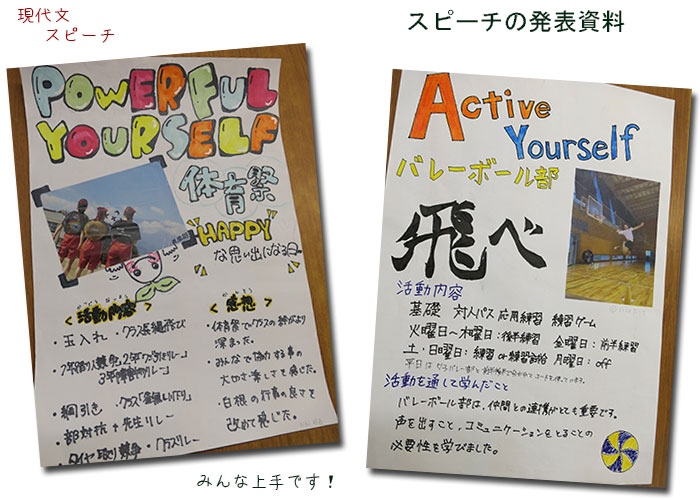 現代文
スピーチ
スピーチの発表資料
POWERFUL
YOURSELF
体育祭
"HAPPY"
な思い出になる日
<活動内容>
・玉入れ・クラス長縄跳び
3年障害物リレー
・綱引き
・部対抗+先生リレー
・タイヤ取り競争・クラスリレー
<感想>
・体育祭でクラスの絆がより
深まった。
・みんなで協力する事の
大切さ・楽しさを感じた。
・白根の行事の良さを
改めて感じた。
Active
Yourself
バレーボール部
飛べ
活動内容
基礎 対人パス 応用練習 練習ゲーム
火曜日〜木曜日:後半練習 金曜日:前半練習
土・日曜日:練習or練習試合 月曜日:off
活動を通して学んだこと
バレーボール部は、仲間との連携がとても重要です。
声を出すこと、コミュニケーションをとることの
必要性を学びました。
みんな上手です!